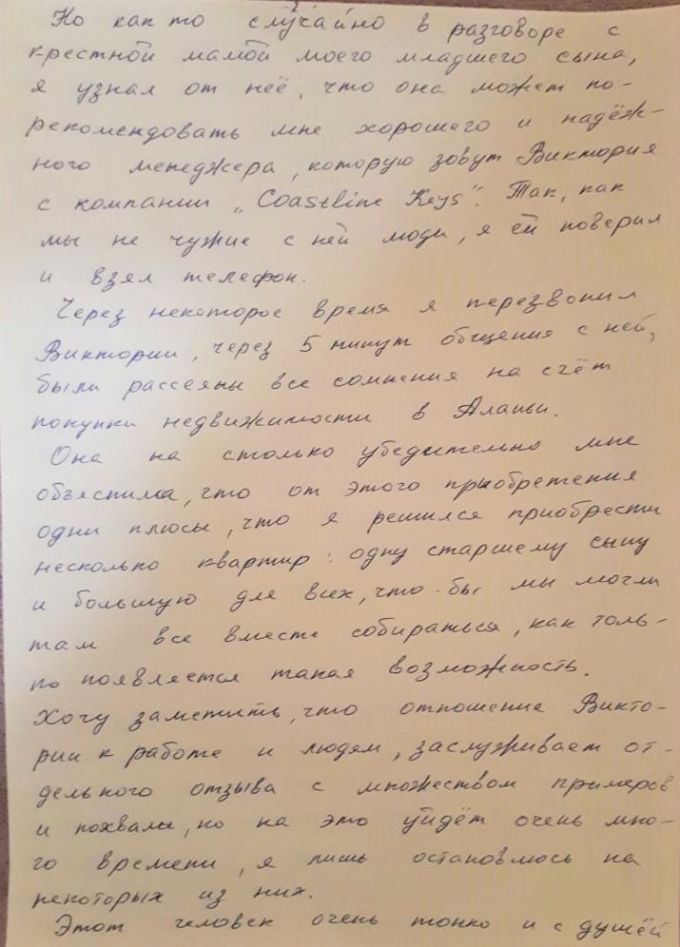 Но как то случайно в разговоре с
крестной мамой моего младшего сына,
я узнал от неё, что она может по-
рекомендовать мне хорошего и надёж-
ного менеджера, которую зовут Виктория
с компании „Coastline Keys“. Так, как
мы не чужие с ней люди, я ей поверил
и взял телефон.
Через некоторое время я перезвонил
Виктории, через 5 минут общения с ней,
были рассеяны все сомнения на счёт
покупки недвижимости в Аланьи.
Она на столько убедительно мне
объяснила, что от этого приобретения
одни плюсы, что я решился приобрести
несколько квартир: одну старшему сыну
и большую для всех, что-бы мы могли
там все вместе собираться, как толь-
ко появляется такая возможность.
Хочу заметить, что отношение Викто-
рии к работе и людям, заслуживает от-
дельного отзыва с множеством примеров
и похвалы, но на это уйдёт очень мно-
го времени, я лишь остановлюсь на
некоторых из них.
Этот человек очень тонко и с душей